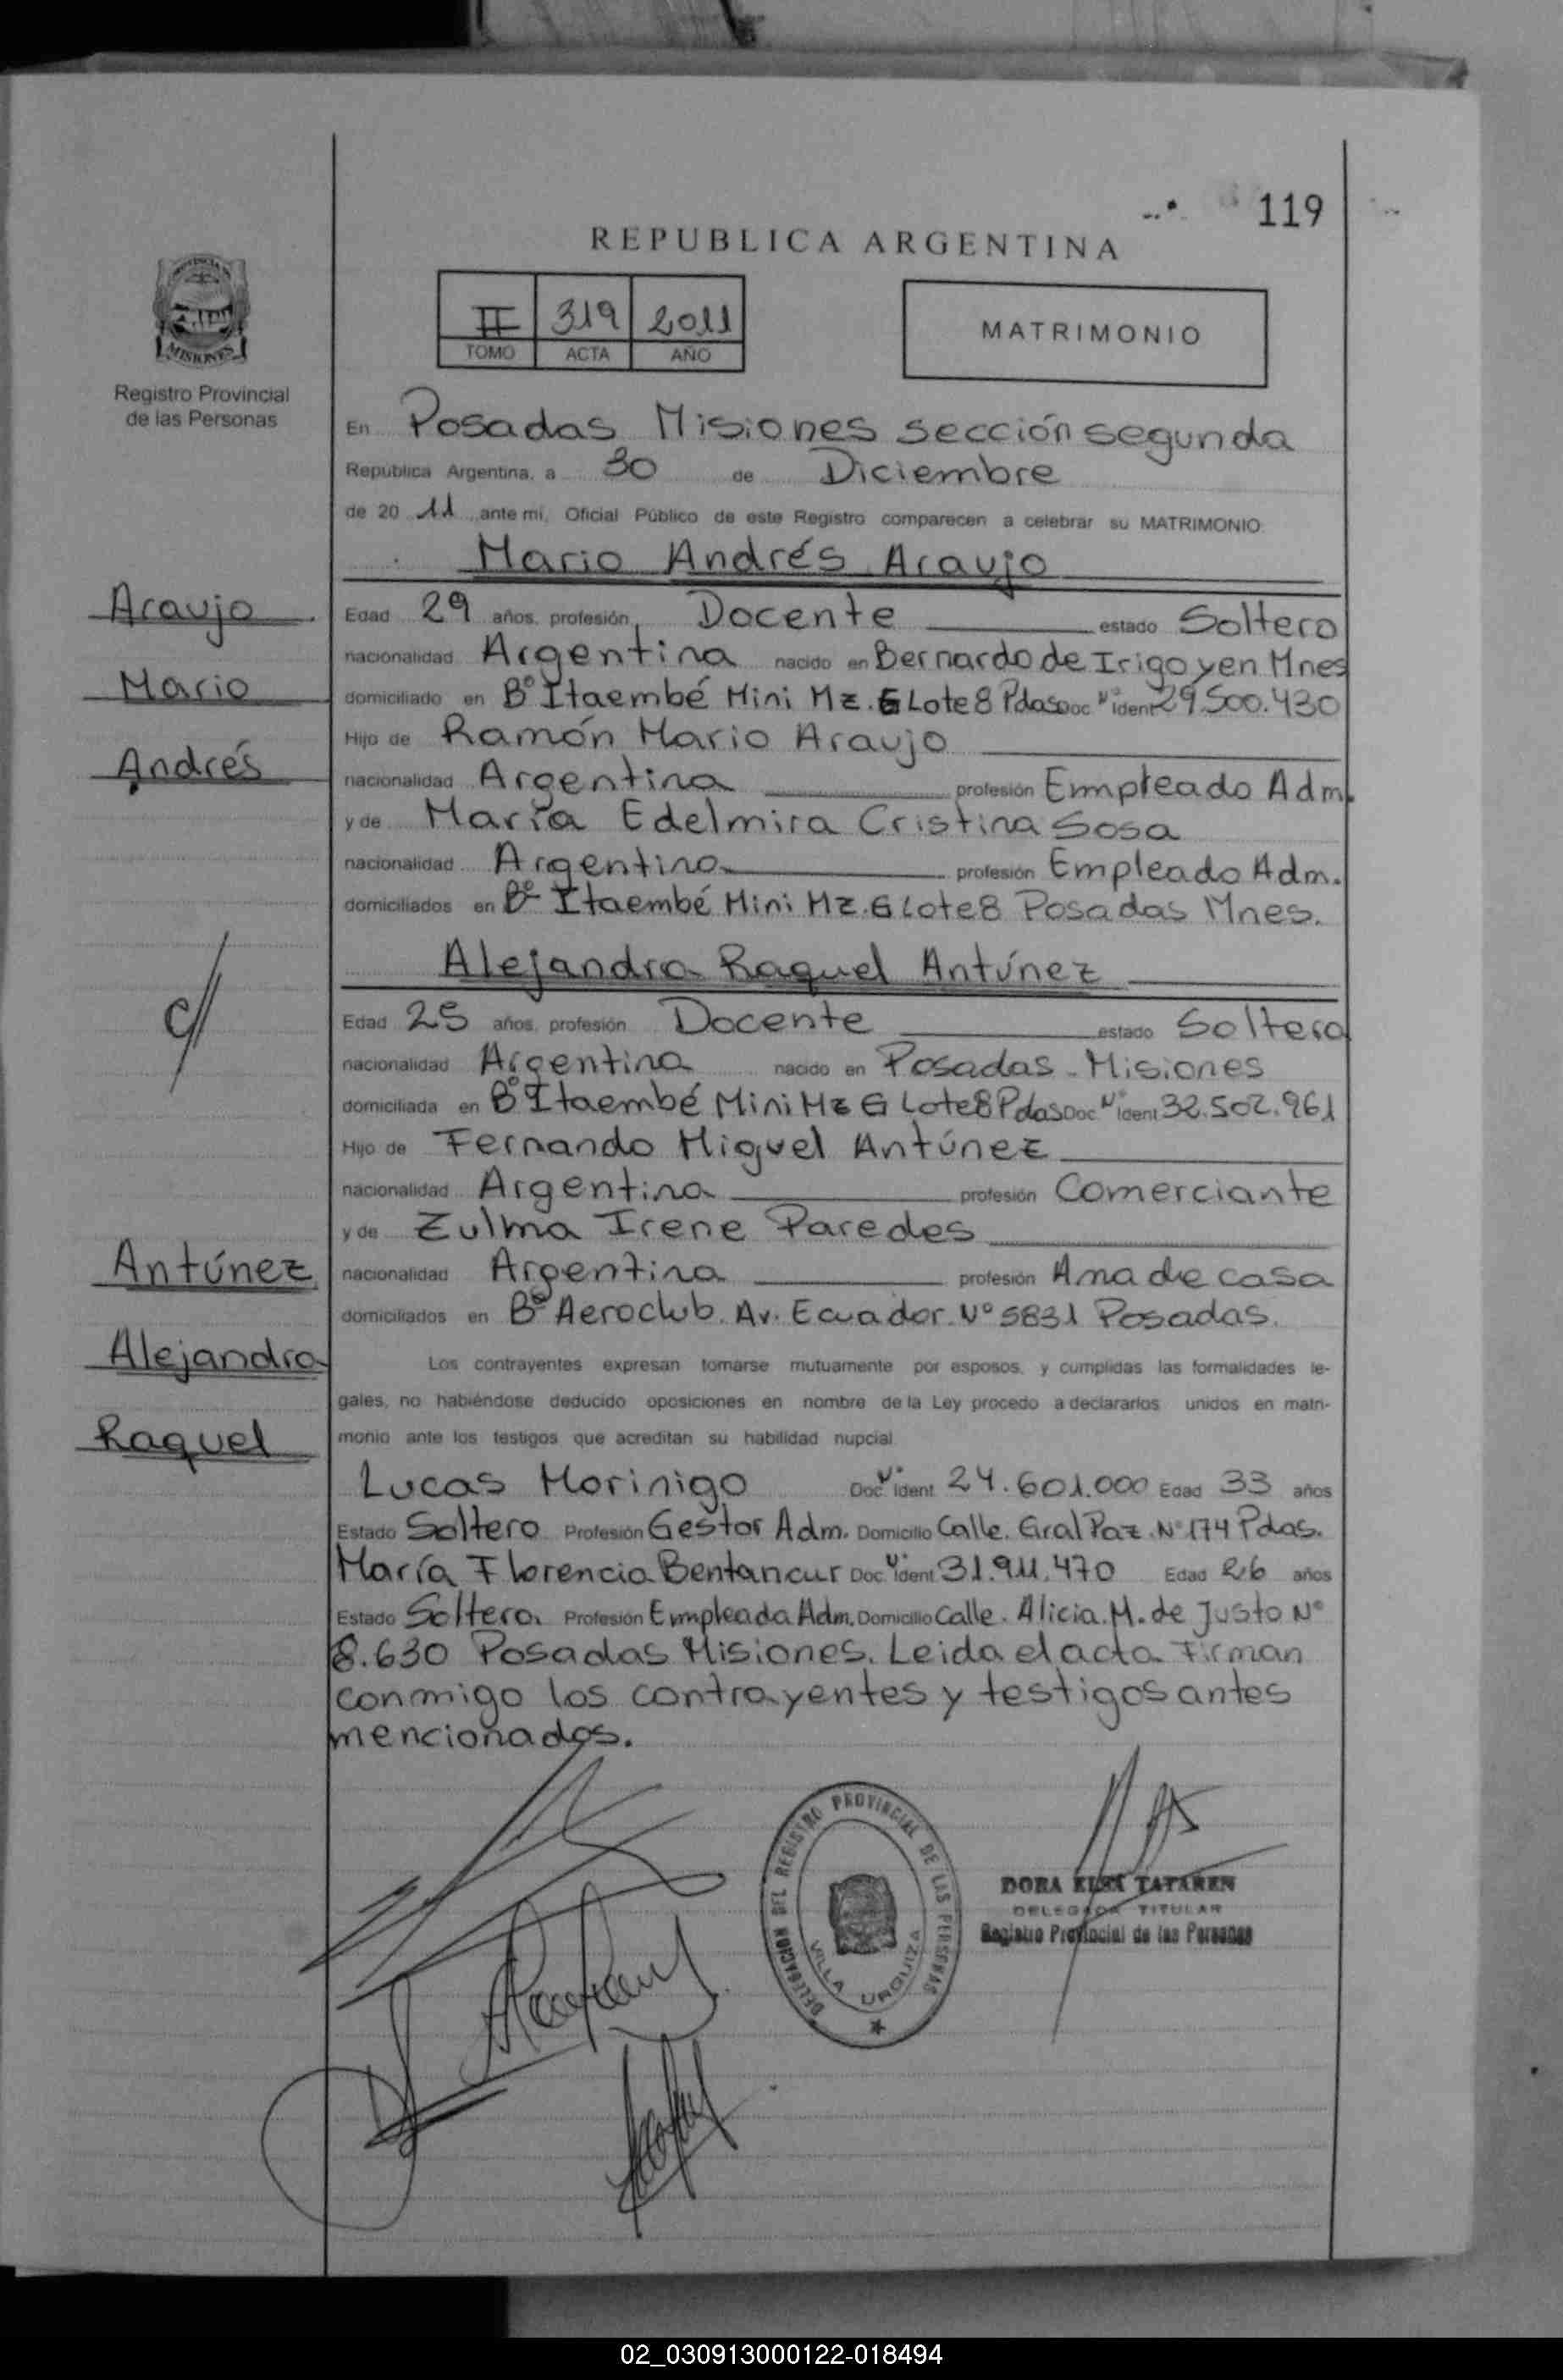 119
REPUBLICA ARGENTINA
II 319 2011
TOMO ACTA AÑO
MATRIMONIO
MISIONES
Registro Provincial
de las Personas
En Posadas Misiones sección segunda
Republica Argentina, a 30 de Diciembre
de 2011 ante mi, Oficial Público de este Registro comparecen a celebrar su MATRIMONIO
Mario Andrés Araujo
Araujo
Mario
Andrés
Edad 29 años, profesión Docente estado Soltero
nacionalidad Argentina nacido en Bernardo de Irigoyen Mnes
domiciliado en Bº Itaembé Mini Mz. G Lote 8 Pdas Doc Nº ident 29.500.430
Hijo de Ramón Mario Araujo
nacionalidad Argentina profesión Empleado Adm.
y de María Edelmira Cristina Sosa
nacionalidad Argentina profesión Empleado Adm.
domiciliados en Bº Itaembé Mini Mz. G Lote 8 Posadas Mnes.
Alejandra Raquel Antúnez
c/
Edad 25 años, profesión Docente estado Soltera
nacionalidad Argentina nacido en Posadas - Misiones
domiciliada en Bº Itaembé Mini Mz G Lote 8 Pdas Doc Nº ident 32.502.961
Hijo de Fernando Miguel Antúnez
nacionalidad Argentina profesión Comerciante
y de Zulma Irene Paredes
Antúnez
Alejandra
Raquel
nacionalidad Argentina profesión Ama de casa
domiciliados en Bº Aeroclub. Av. Ecuador. Nº 5831 Posadas.
Los contrayentes expresan tomarse mutuamente por esposos, y cumplidas las formalidades le-
gales, no habiéndose deducido oposiciones en nombre de la Ley procedo a declararlos unidos en matri-
monio ante los testigos que acreditan su habilidad nupcial
Lucas Morinigo Doc Nº ident 24.601.000 Edad 33 años
Estado Soltero Profesión Gestor Adm. Domicilio Calle. Gral Paz. Nº 174 Pdas.
María Florencia Bentancur Doc. Nº ident 31.911.470 Edad 26 años
Estado Soltera. Profesión Empleada Adm. Domicilio Calle. Alicia. M. de Justo Nº
8.630 Posadas Misiones. Leida el acta Firman
conmigo los contrayentes y testigos antes
mencionados.
DELEGACION DEL REGISTRO PROVINCIAL DE LAS PERSONAS
VILLA URQUIZA
DORA ELSA TATAREN
DELEGADA TITULAR
Registro Provincial de las Personas
02_030913000122-018494